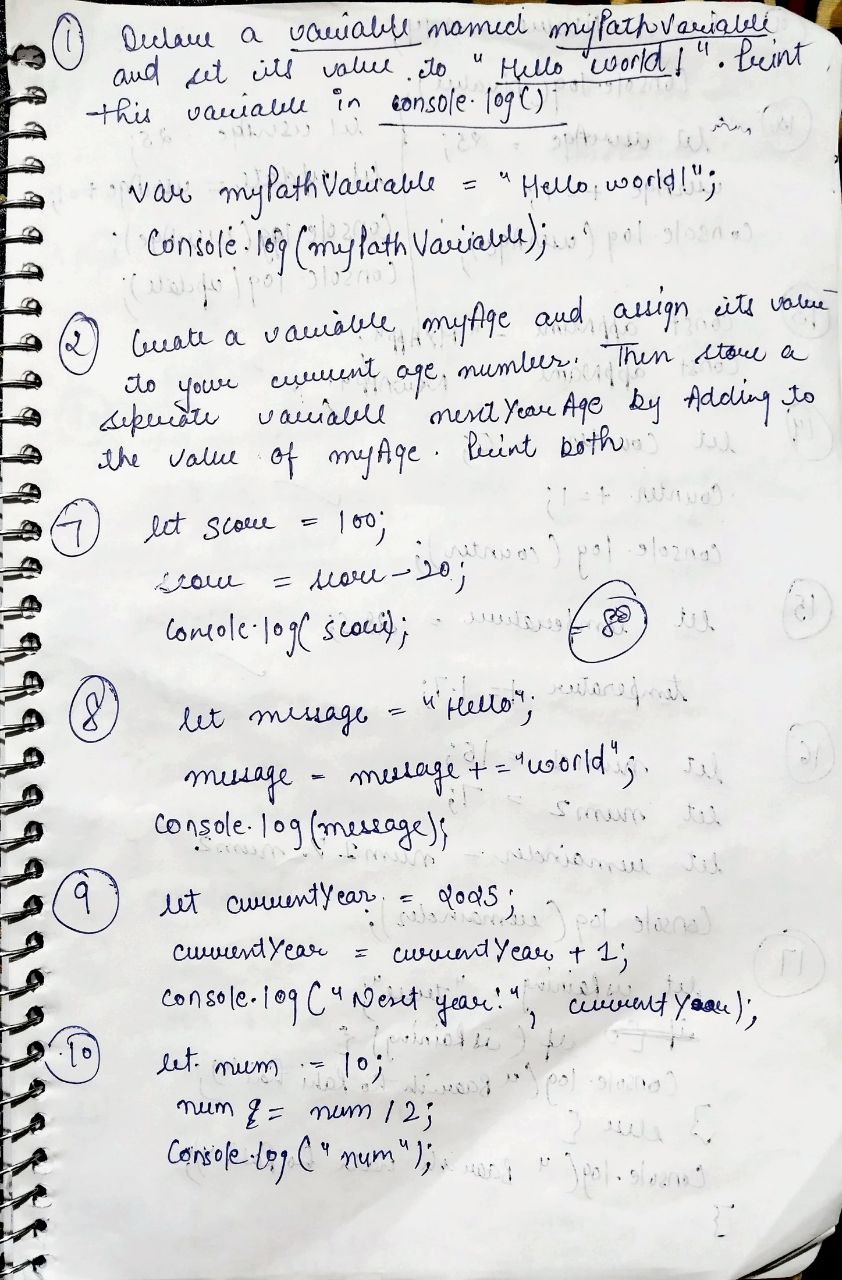 ① Declare a variable named myPathVariable
and set its value to "Hello world!". Print
this variable in console.log()
var myPathVariable = "Hello world!";
Console.log(myPathVariable);
② Create a variable myAge and assign its value
to your current age number. Then store a
seperate variable nextYearAge by Adding to
the value of myAge. Print both
⑦ let score = 100;
score = score - 20;
console.log(score); = 80
⑧ let message = "Hello";
message = message += "world";
console.log(message);
⑨ let currentYear = 2025;
currentYear = currentYear + 1;
console.log("Next year:", currentYear);
⑩ let num = 10;
num = num / 2;
Console.log("num");